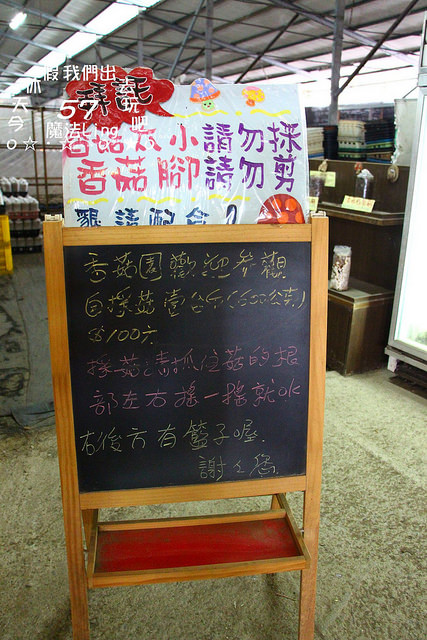 今天休假我們出玩吧
☆57
魔法Ling
拜託
香菇太小請勿採
香菇腳請勿剪
懇請配合
香菇園歡迎參觀
自採菇壹台斤(600公克)
$100元
採菇:請抓住菇的根
部左右搖一搖就OK
右後方有籃子喔.
謝々您.